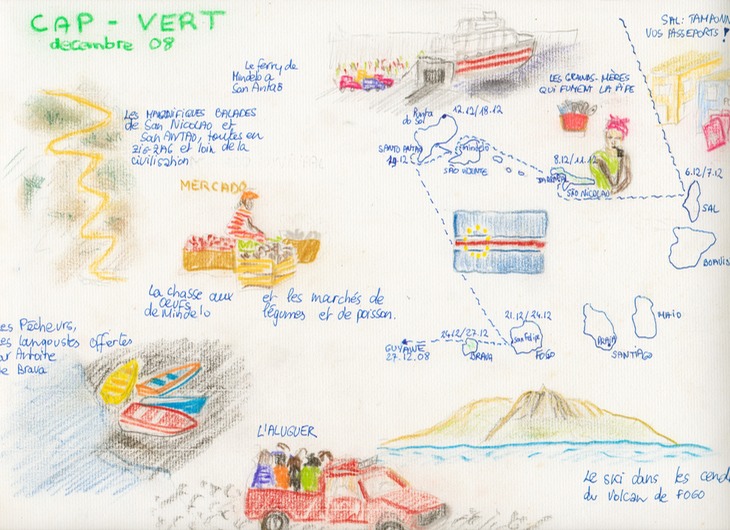 CAP - VERT
decembre 08
SAL: TAMPONN
VOS PASSEPORTS!
Le ferry de
Mindelo a
San Antao
LES GRANDS-MÈRES
QUI FUMENT LA PIPE
LES MAGNIFIQUES BALADES
de San Nicolao et
San ANTAO, toutes en
ZIG ZAG et loin de la
civilisation
Ponta
do Sol
12.12/18.12
SANTO ANTAO
19.12
Mindelo
SAO VICENTE
8.12/11.12
TARRAFAL
SÃO NICOLAO
6.12/7.12
SAL
BOAVIS
MERCADO
La chasse aux
OEUFS
de Mindelo
et les marchés de
légumes et de poisson.
es Pêcheurs,
es langoustes offertes
ar Antoite
de Brava
21.12/24.12
San Felipe
FOGO
24.12/27.12
BRAVA
GUYANE
27.12.08
PRAIA
SANTIAGO
MAIO
L'ALUGUER
Le ski dans les cend
du volcan de FOGO